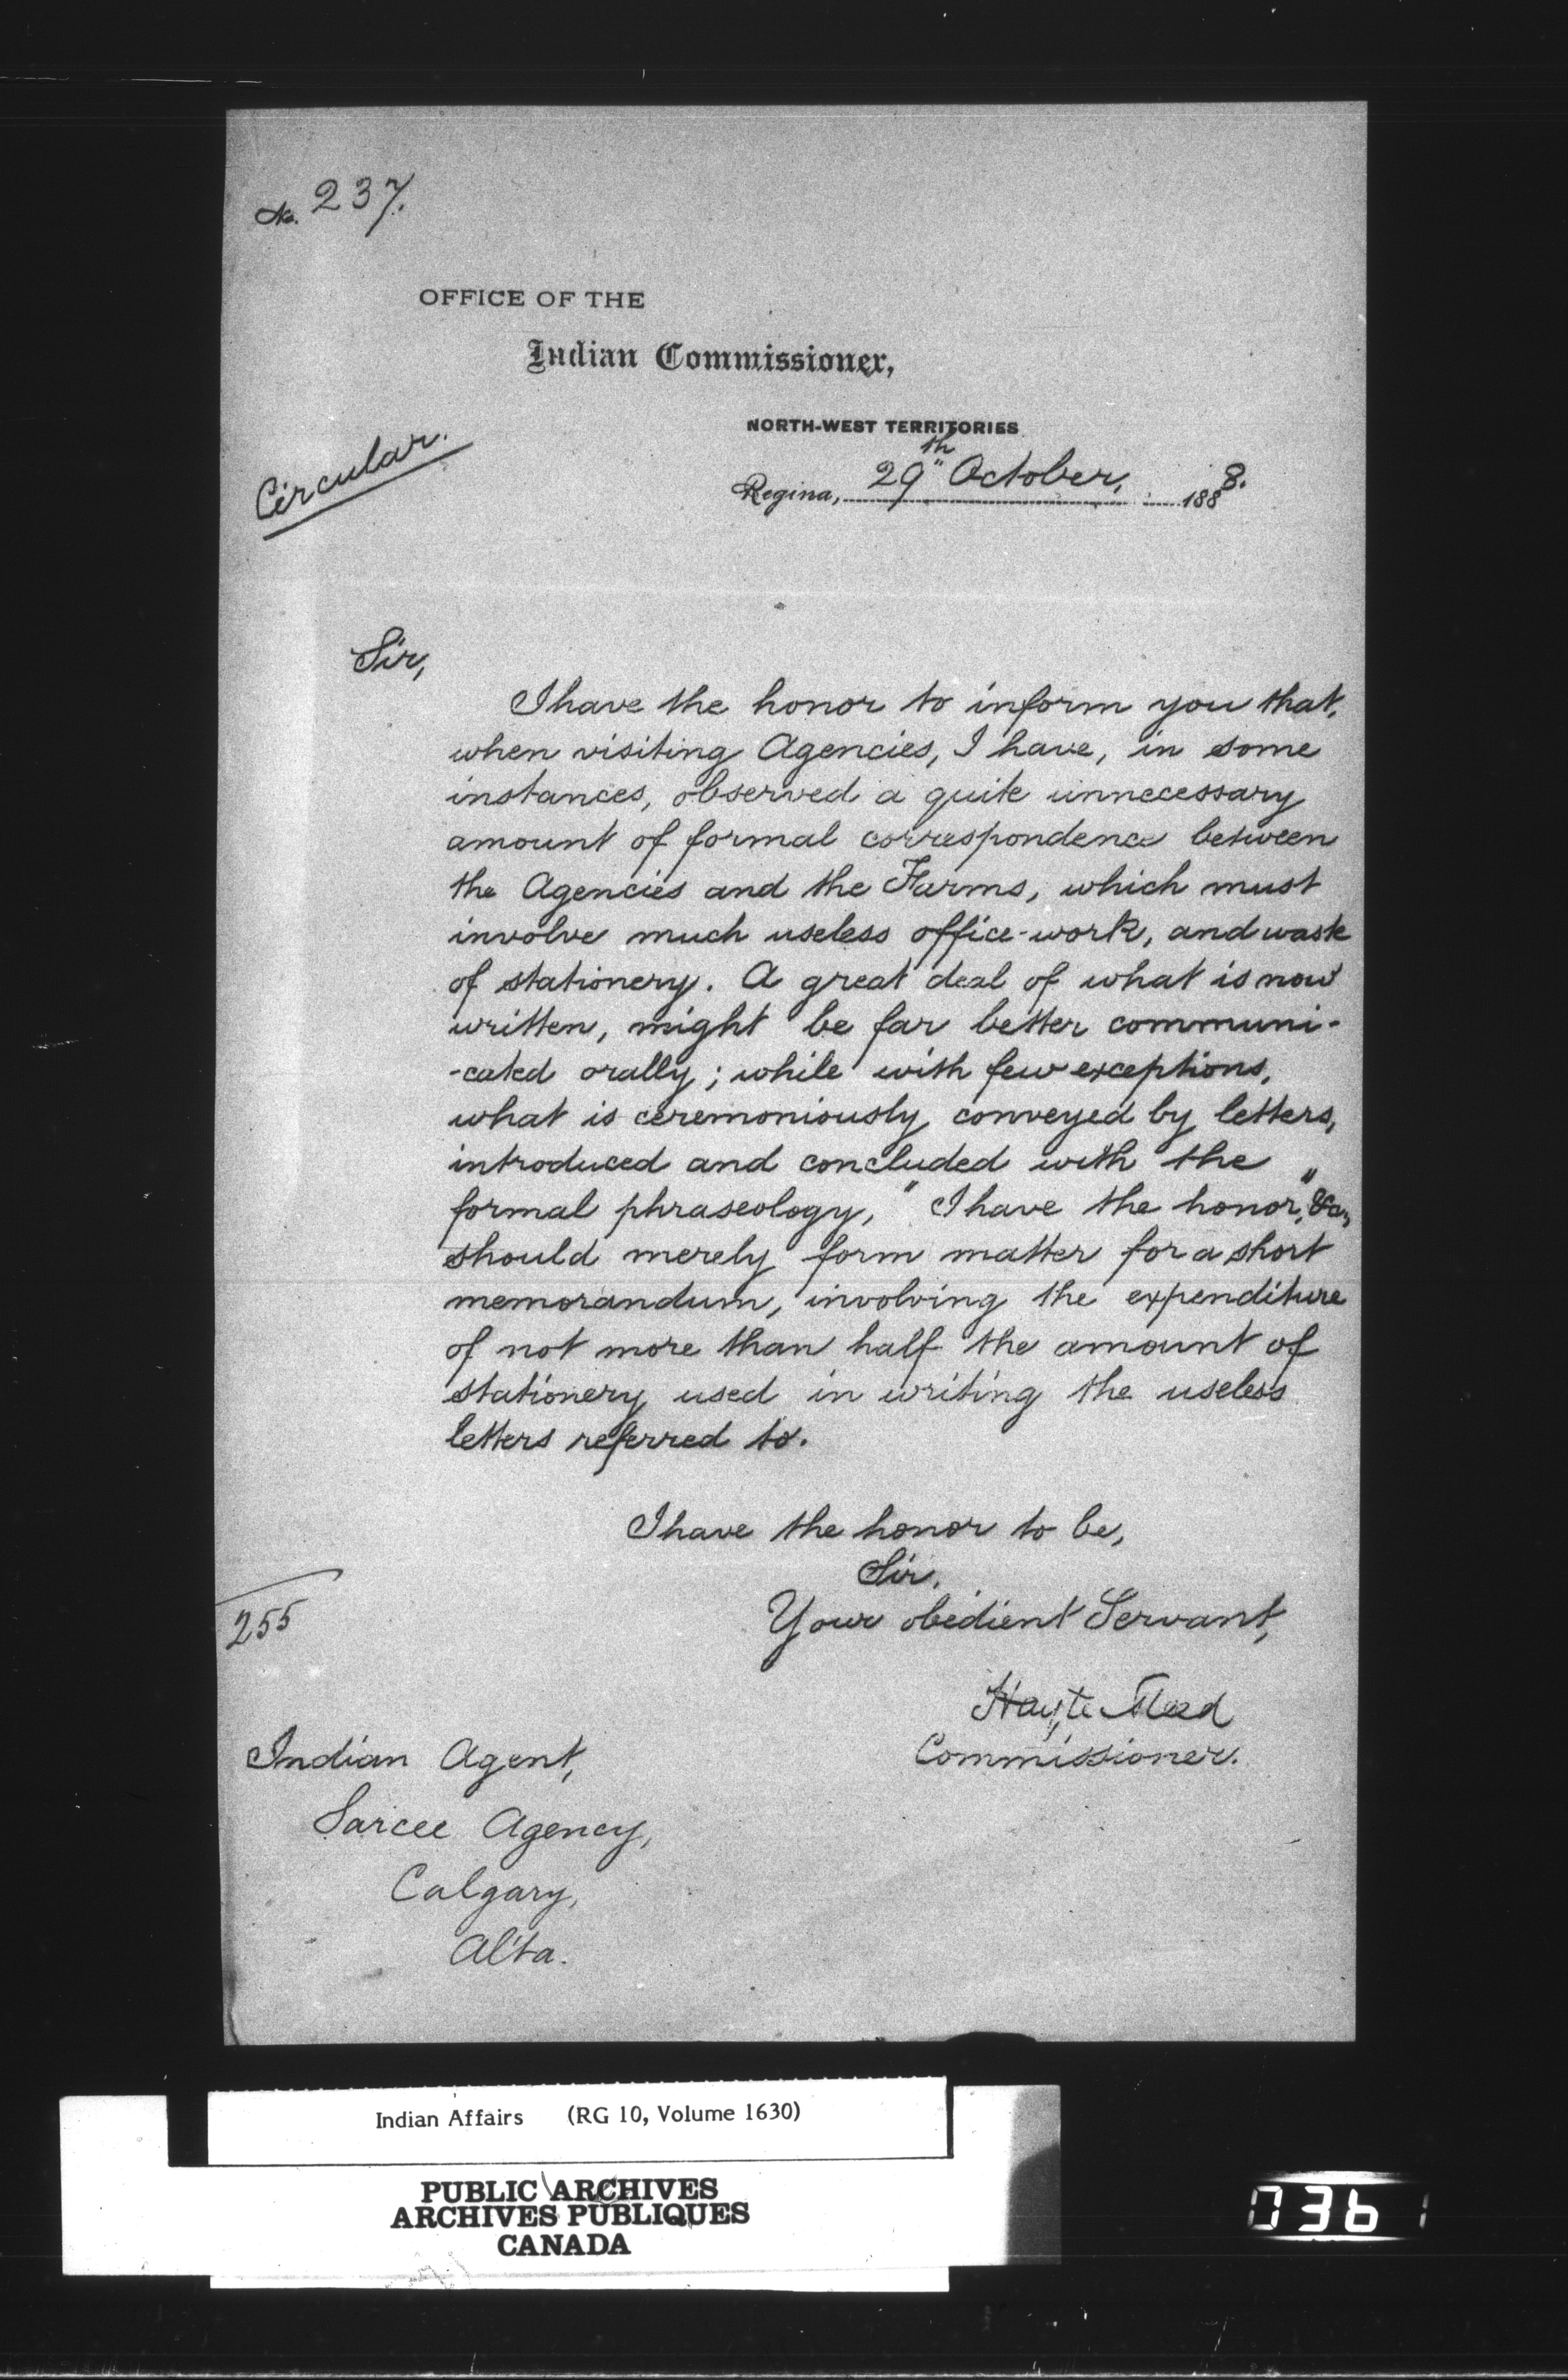 No. 237.
OFFICE OF THE
Indian Commissioner,
NORTH-WEST TERRITORIES
Circular.
Regina, 29th October, 1888.
Sir,
I have the honor to inform you that,
when visiting Agencies, I have, in some
instances, observed a quite unnecessary
amount of formal correspondence between
the Agencies and the Farms, which must
involve much useless office-work, and waste
of stationery. A great deal of what is now
written, might be far better communi-
-cated orally; while with few exceptions,
what is ceremoniously conveyed by letters,
introduced and concluded with the
formal phraseology, "I have the honor," &c,
should merely form matter for a short
memorandum, involving the expenditure
of not more than half the amount of
stationery used in writing the useless
letters referred to.
I have the honor to be,
Sir,
Your obedient Servant,
255
Hayter Reed
Commissioner.
Indian Agent,
Sarcee Agency,
Calgary,
Alta.
Indian Affairs (RG 10, Volume 1630)
PUBLIC ARCHIVES
ARCHIVES PUBLIQUES
CANADA
0361